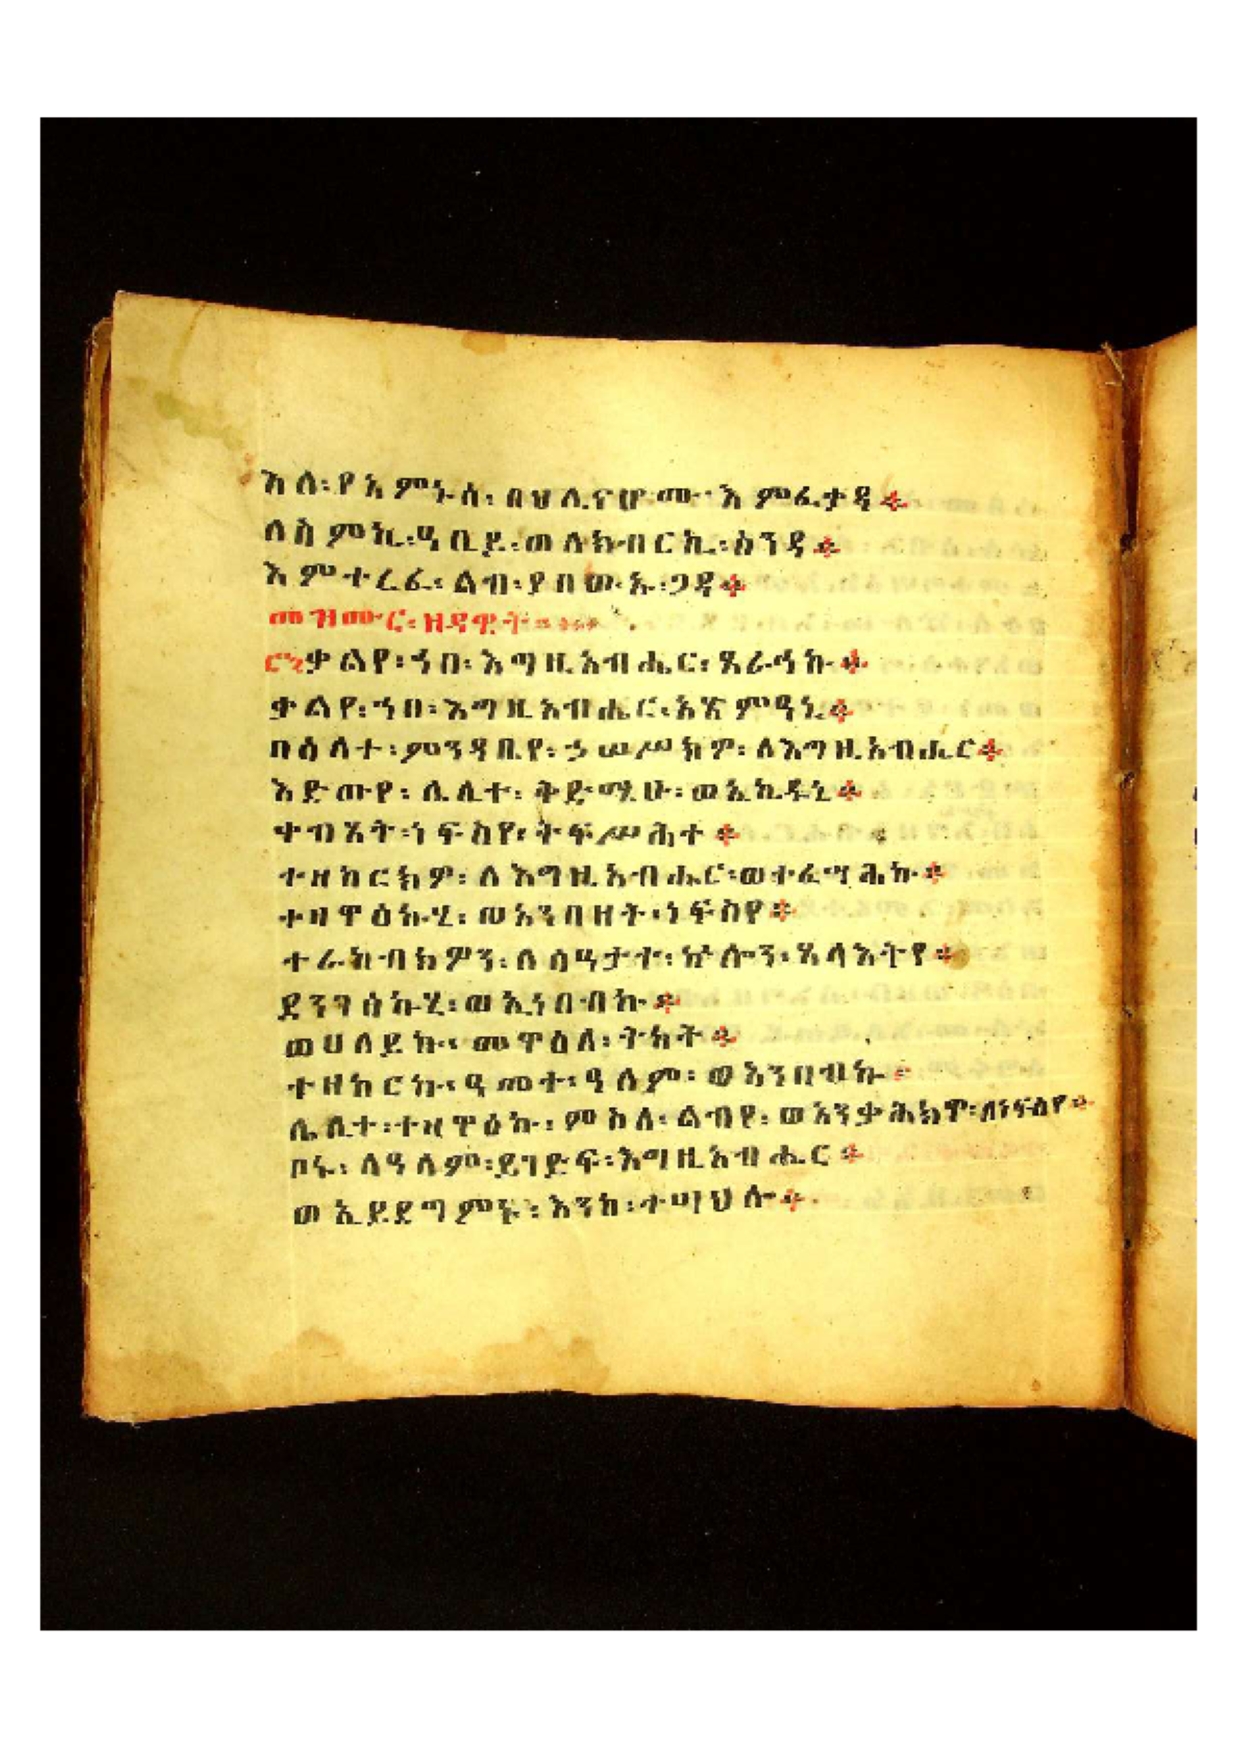 እለ፡የአምኑሰ፡በህሊናሆሙ፡እምፈታዳ።
ለስምኪ፡ዓቢይ፡ወለክብርኪ፡ስንዳ።
እምተረፈ፡ልብ፡ያበውኡ፡ጋዳ።
መዝሙር፡ዘዳዊት።
ቃልየ፡ኀበ፡እግዚአብሔር፡ጸራኅኩ።
ቃልየ፡ኀበ፡እግዚአብሔር፡አጽምዓኒ።
በዕለተ፡ምንዳቤየ፡ኃሠሥክዎ፡ለእግዚአብሔር።
እድውየ፡ሌሊተ፡ቅድሜሁ፡ወኢኬዱኒ።
ቀብጸት፡ነፍስየ፡ትፍሥሕተ።
ተዘከርክዎ፡ለእግዚአብሔር፡ወተፈሣሕኩ።
ተዛዋዕኩሂ፡ወአንበዘት፡ነፍስየ።
ተራከብክዎን፡ለሰዓታት፡ኵሎን፡ጸላእትየ።
ደንገፅኩሂ፡ወኢነበብኩ።
ወሀለይኩ፡መዋዕለ፡ትካት።
ተዘከርኩ፡ዓመተ፡ዓለም፡ወአንበብኩ።
ሌሊተ፡ተዛዋዕኩ፡ምስለ፡ልብየ፡ወአንቃሕክዋ፡ለነፍስየ።
ቦኑ፡ለዓለም፡ይገድፍ፡እግዚአብሔር።
ወኢይደግምኑ፡እንከ፡ተሣህሎ።